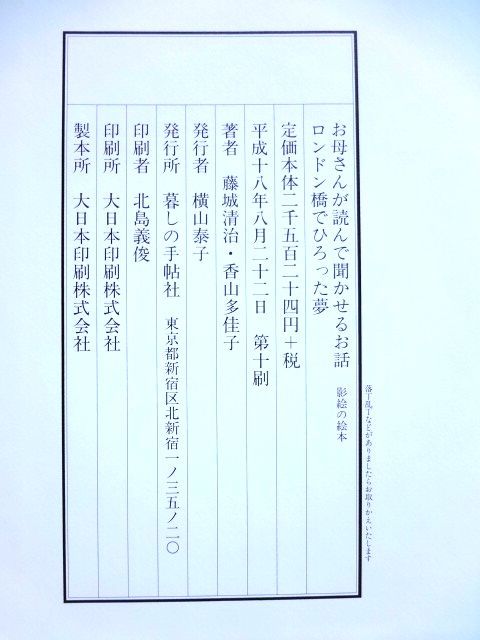 落丁乱丁などがありましたらお取りかえいたします
お母さんが読んで聞かせるお話 影絵の絵本
ロンドン橋でひろった夢
定価本体二千五百二十四円＋税
平成十八年八月二十二日 第十刷
著者 藤城清治・香山多佳子
発行者 横山泰子
発行所 暮しの手帖社 東京都新宿区北新宿一ノ三五ノ二〇
印刷者 北島義俊
印刷所 大日本印刷株式会社
製本所 大日本印刷株式会社